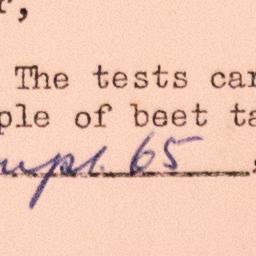 r,
The tests car
ple of beet ta
mpl. 65